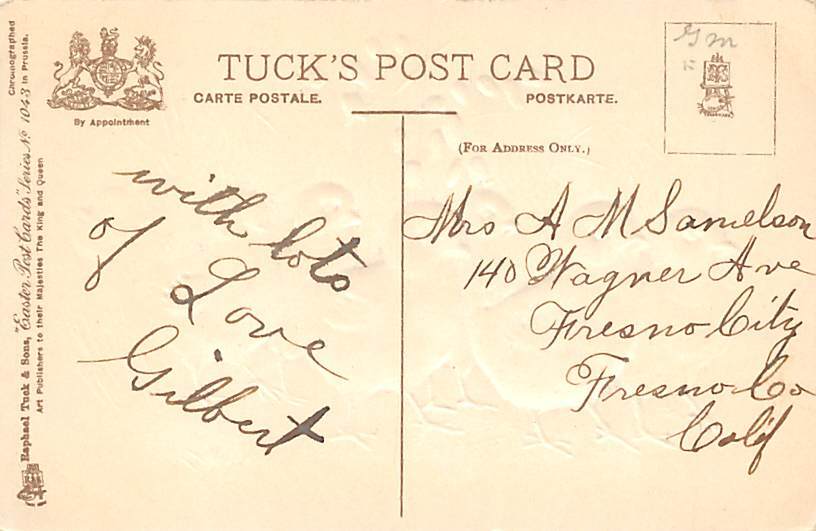 TUCK'S POST CARD
CARTE POSTALE.
POSTKARTE.
By Appointment
(FOR ADDRESS ONLY.)
Raphael Tuck & Sons, "Easter Post Cards" Series No 1043
Art Publishers to their Majesties The King and Queen
Chromographed
in Prussia.
Gm
with lots
of Love
Gilbert
Mrs A M Samelson
140 Wagner Ave
Fresno City
Fresno Co
Calif